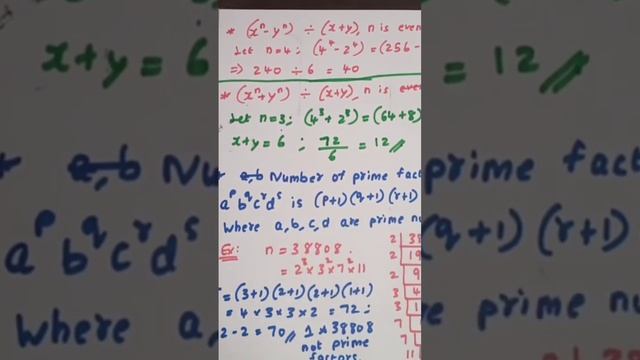 * (xⁿ-yⁿ) ÷ (x+y), n is even
Let n=4: (4⁴-2⁴) = (256-
⇒ 240 ÷ 6 = 40
* (xⁿ+yⁿ) ÷ (x+y), n is eve
Let n=3: (4³+2³) = (64+8)
x+y=6 ; 72/6 = 12
a,b Number of prime fact
aᵖb^qcʳdˢ is (p+1)(q+1)(r+1)
where a,b,c,d are prime nu
Ex: n = 38808
= 2³×3²×7²×11
= (3+1)(2+1)(2+1)(1+1)
= 4×3×3×2 = 72 ;
2-2=70, 1×38808
not prime
factors.
2 38
2 19
2 9
3 4
3 1
7
7
11
x+y=6
= 12
prime fact
(q+1)(r+1)
aᵖb^qcʳdˢ
where a,
prime nu